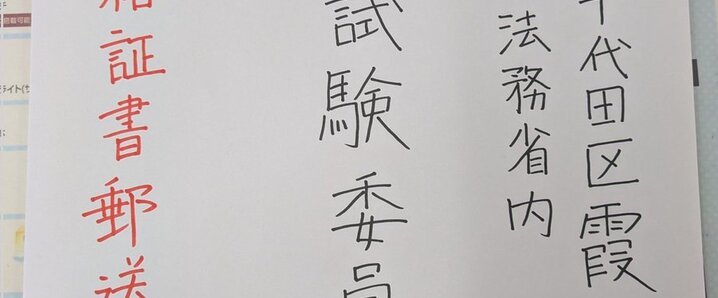 千代田区霞
法務省内
試験委員
証書郵送
搭載可能